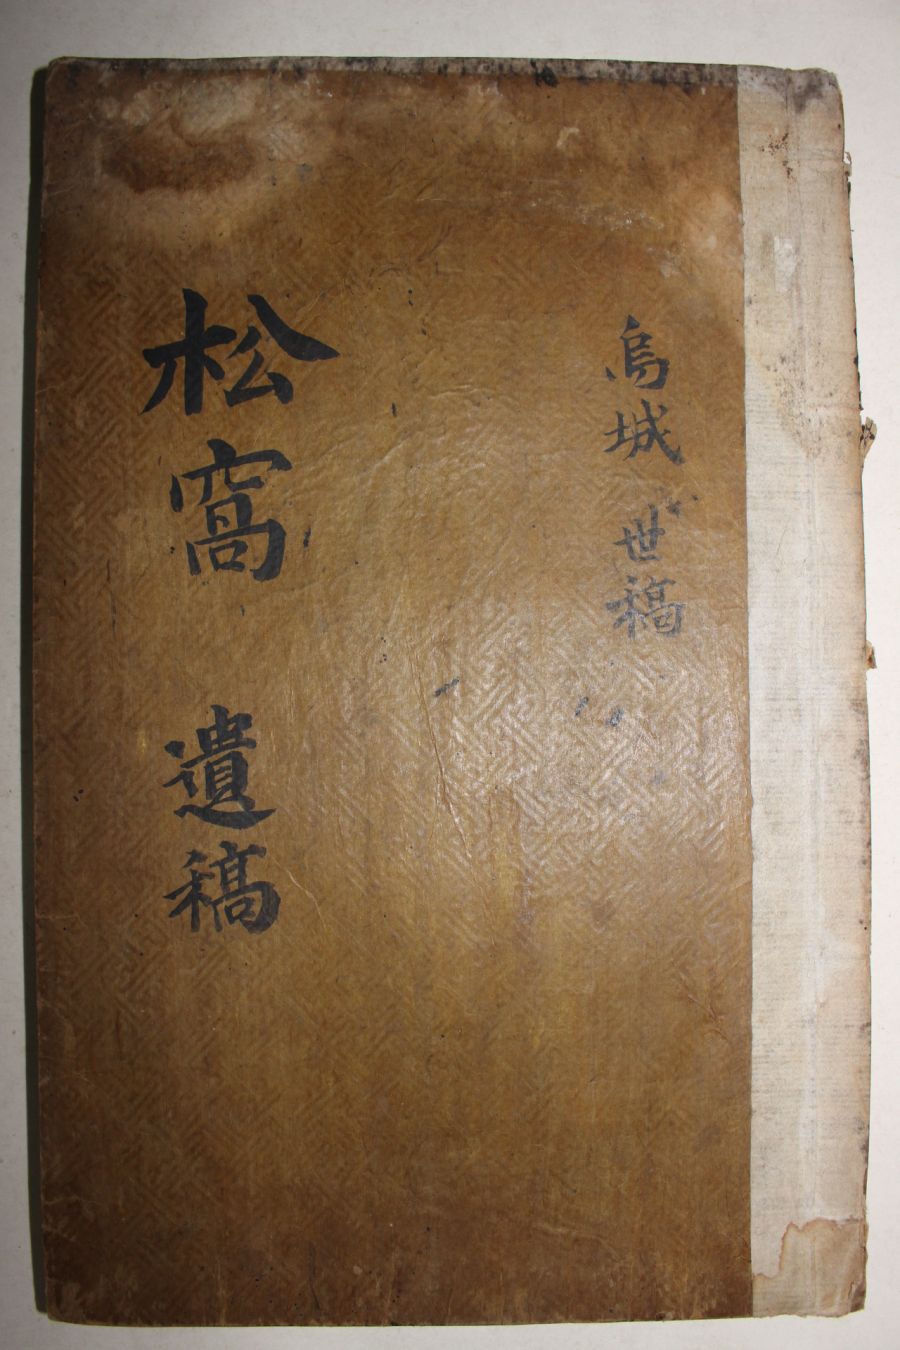 烏城世稿
松窩遺稿